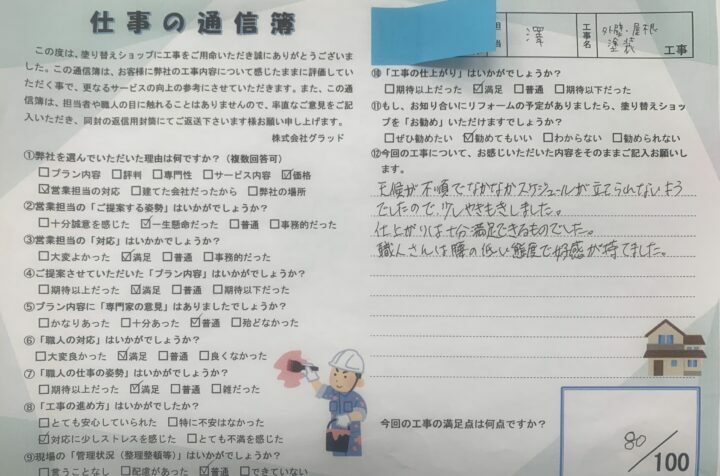 仕事の通信簿
この度は、塗り替えショップに工事をご用命いただき誠にありがとうございまし
た。この通信簿は、お客様に弊社の工事内容について感じたままに評価してい
ただく事で、更なるサービスの向上の参考にさせていただきます。また、この通
信簿は、担当者や職人の目に触れることはありませんので、率直なご意見をご記
入いただき、同封の返信用封筒にてご返送下さいます様お願い申し上げます。
株式会社グラッド
①弊社を選んでいただいた理由は何ですか？（複数回答可）
□プラン内容 □評判 □専門性 □サービス内容 ☑価格
☑営業担当の対応 □建てた会社だったから □弊社の場所
②営業担当の「ご提案する姿勢」はいかがでしょうか？
□十分誠意を感じた ☑一生懸命だった □普通 □事務的だった
③営業担当の「対応」はいかかでしょうか？
□大変よかった ☑満足 □普通 □事務的だった
④ご提案させていただいた「プラン内容」はいかがでしょうか？
□期待以上だった ☑満足 □普通 □期待以下だった
⑤プラン内容に「専門家の意見」はありましたでしょうか？
□かなりあった □十分あった ☑普通 □殆どなかった
⑥「職人の対応」はいかがでしょうか？
□大変良かった ☑満足 □普通 □良くなかった
⑦「職人の仕事の姿勢」はいかがでしょうか？
□期待以上だった ☑満足 □普通 □雑だった
⑧「工事の進め方」はいかがでしたか？
□とても安心していられた □特に不安はなかった
☑対応に少しストレスを感じた □とても不満を感じた
⑨現場の「管理状況（整理整頓等）」はいかがでしょうか？
□言うことなし □配慮があった ☑普通 □できていない
当 澤 工事名 外壁・屋根塗装 工事
⑩「工事の仕上がり」はいかがでしょうか？
□期待以上だった ☑満足 □普通 □期待以下だった
⑪もし、お知り合いにリフォームの予定がありましたら、塗り替えショッ
プを「お勧め」いただけますでしょうか？
□ぜひ勧めたい ☑勧めてもいい □わからない □勧められない
⑫今回の工事について、お感じいただいた内容をそのままご記入お願いし
ます。
天候が不順でなかなかスケジュールが立てられないよう
でしたので、少しやきもきしました。
仕上がりは十分満足できるものでした。
職人さんは腰の低い態度で好感が持てました。
今回の工事の満足点は何点ですか？
80/100